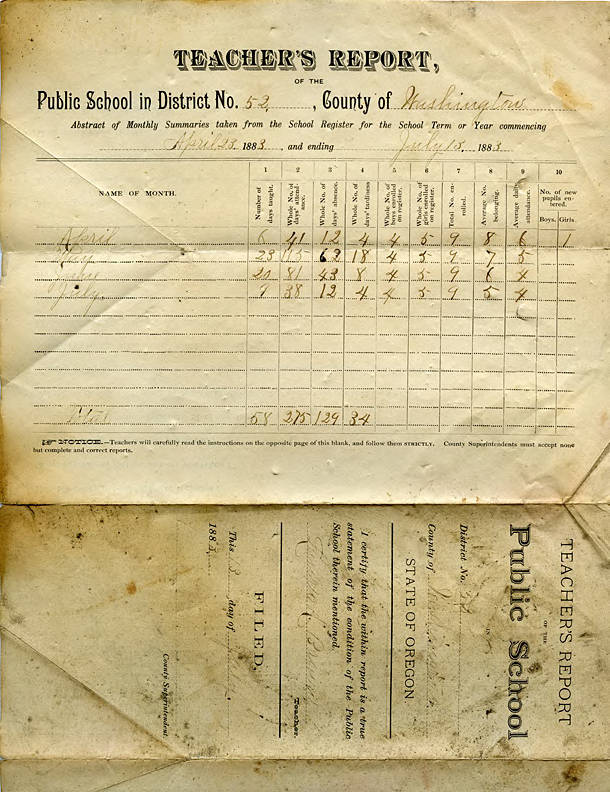 TEACHER'S REPORT,
OF THE
Public School in District No. 52, County of Washington
Abstract of Monthly Summaries taken from the School Register for the School Term or Year commencing
April 23 1883, and ending July 13 1883
1 2 3 4 5 6 7 8 9 10
NAME OF MONTH. Number of days taught. Whole No. of days' attendance. Whole No. of days' absence. Whole No. of days' tardiness Whole No. of boys enrolled on register. Whole No. of girls enrolled on register. Total No. enrolled. Average No. belonging. Average daily attendance. No. of new pupils entered.
Boys. Girls.
April 6 41 12 4 4 5 9 8 6 1
May 23 115 62 18 4 5 9 7 5
June 20 81 43 8 4 5 9 6 4
July 9 38 12 4 4 5 9 5 4
Total 58 275 129 34
NOTICE.—Teachers will carefully read the instructions on the opposite page of this blank, and follow them STRICTLY. County Superintendents must accept none
but complete and correct reports.
TEACHER'S REPORT
OF THE
Public School
District No. 52
County of
STATE OF OREGON
I certify that the within report is a true
statement of the condition of the Public
School therein mentioned.
Teacher.
FILED,
This day of
188
County Superintendent.